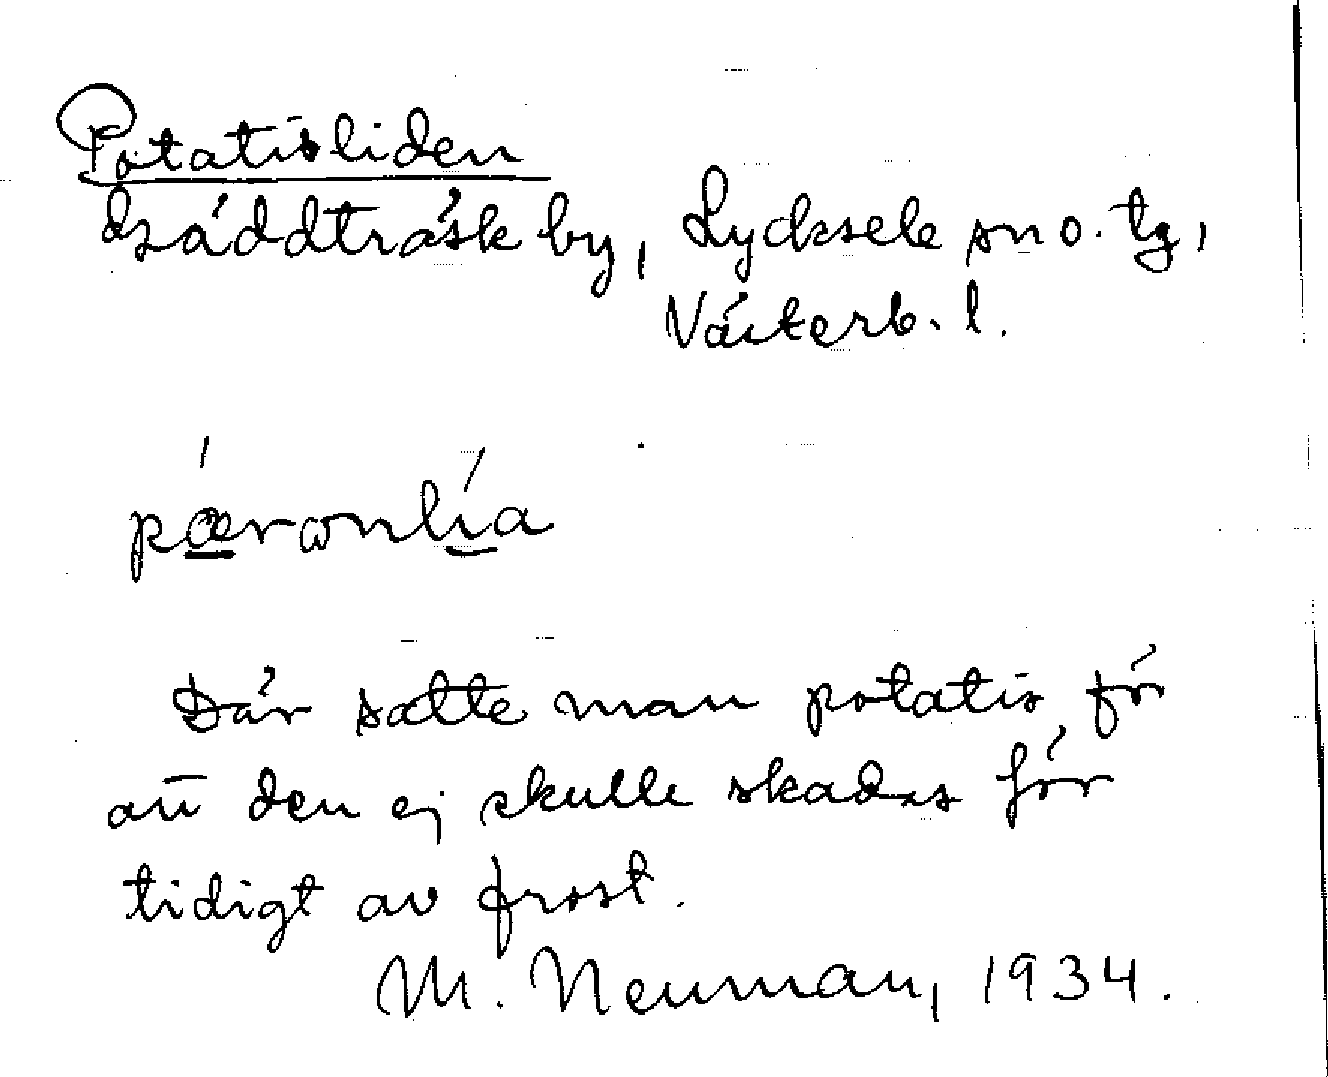 Potatisliden
Bräddträsk by, Lycksele sn o. tg,
Västerb. l.
pæronlía
Där satte man potatis för
att den ej skulle skadas för
tidigt av frost.
M. Neuman, 1934.